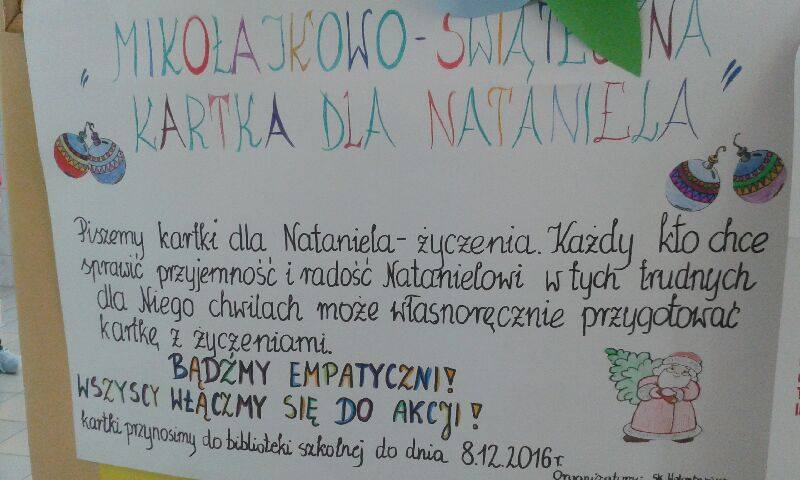 MIKOŁAJKOWO-ŚWIĄTECZNA
„KARTKA DLA NATANIELA”
Piszemy kartki dla Nataniela - życzenia. Każdy kto chce
sprawić przyjemność i radość Natanielowi w tych trudnych
dla Niego chwilach może własnoręcznie przygotować
kartkę z życzeniami.
BĄDŹMY EMPATYCZNI!
WSZYSCY WŁĄCZMY SIĘ DO AKCJI!
kartki przynosimy do biblioteki szkolnej do dnia 8.12.2016r.
Organizatorzy: